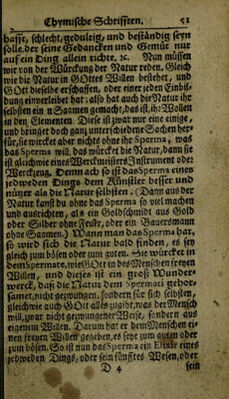 Chymische Schrifften. 51
hafft, schlecht, gedultig, und beständig seyn
solle, der seine Gedancken und Gemüt nur
auf ein Ding allein richte. ꝛc. Nun müssen
wir von der Würckung der Natur reden. Gleich
wie die Natur in GOttes Willen bestehet, und
GOtt dieselbe erschaffen, oder einer jeden Einbil-
dung einverleibet hat: also hat auch die Natur ihr
selbsten ein n Saamen gemacht, das ist, ihr Willen
in den Elementen. Diese ist zwar nur eine einige,
und bringet doch gantz unterschiedene Sachen her-
für, sie würcket aber nichts ohne ihr Sperma, was
das Sperma will, das würcket die Natur, dann sie
ist gleichwie eines Werckmeisters Instrument oder
Werckzeug. Dennach so ist das Sperma eines
jedweden Dings dem Künstler besser und
nützer als die Natur selbsten. (Dann aus der
Natur kanst du ohne das Sperma so viel machen
und ausrichten, als ein Goldschmidt aus Gold
oder Silber ohne Feuer, oder ein Bauersmann
ohne Saamen.) Wann man das Sperma hat,
so wird sich die Natur bald finden, es sey
gleich zum bösen oder zum guten. Sie würcket in
dem Spermate, wie GOtt in des Menschen freyen
Willen, und dieses ist ein groß Wunder-
werck, daß die Natur dem Spermati gehor-
samet, nicht gezwungen, sondern für sich selbsten,
gleichwie auch GOtt alles zugibt, was der Mensch
will, zwar nicht gezwungener Weise, sondern aus
eigenem Willen. Darum hat er dem Menschen ei-
nen freyen Willen gegeben, es seye zum guten oder
zum bösen. So ist nun das Sperma ein Elixir eines
jedweden Dings, oder sein fünfftes Wesen, oder
D 4 sein